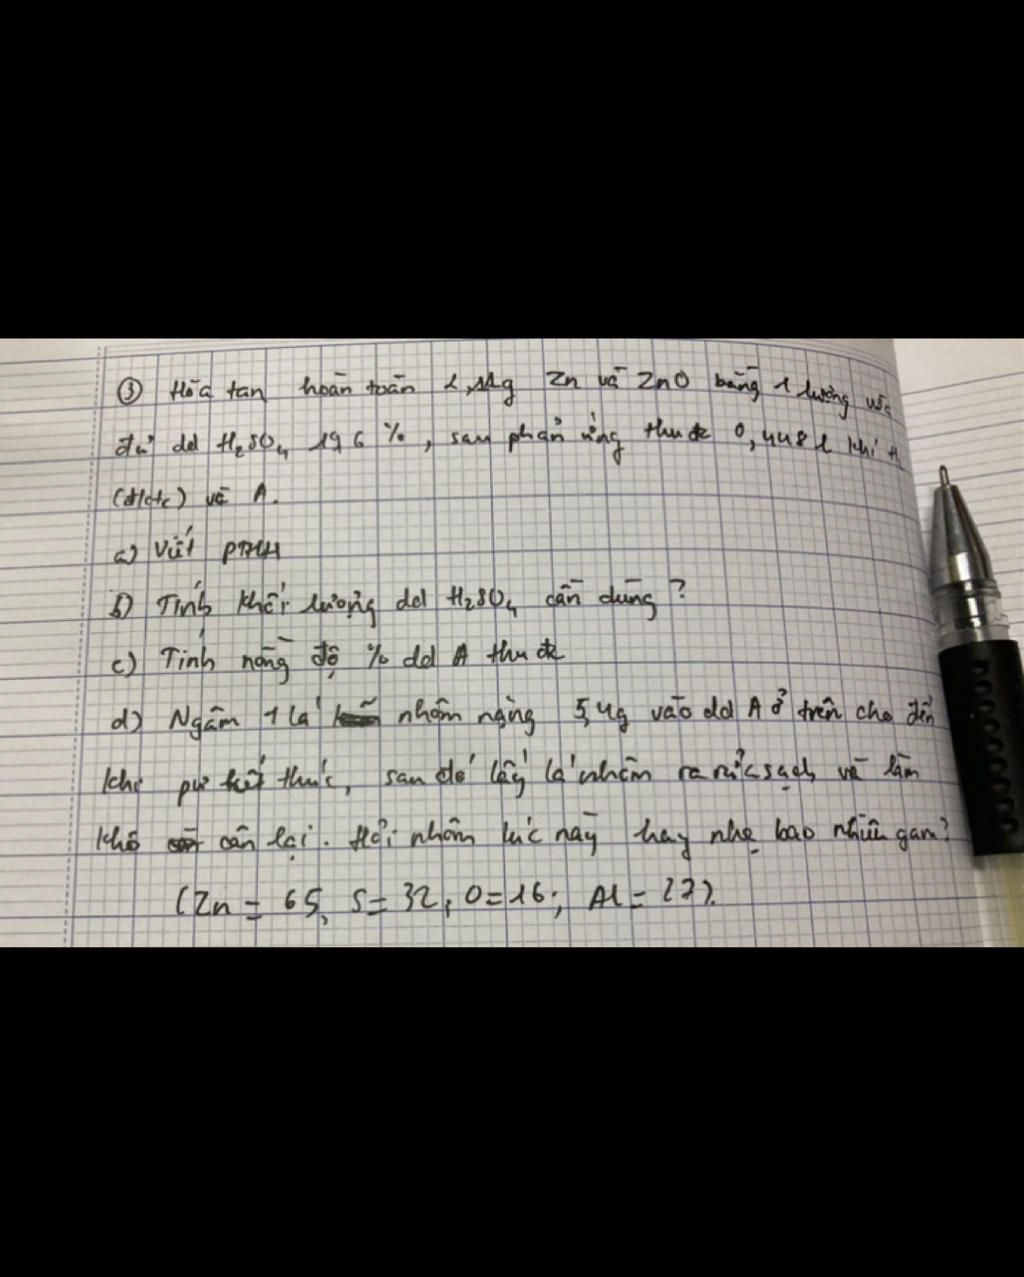 ③ Hòa tan hoàn toàn 2,11g Zn và ZnO bằng 1 lượng vừa
đủ dd H₂SO₄ 19,6%, sau phản ứng thu đc 0,448l khí H₂
(đktc) và A.
a) Viết PTHH
b) Tính khối lượng dd H₂SO₄ cần dùng?
c) Tính nồng độ % dd A thu đc
d) Ngâm 1 lá nhôm nặng 5,4g vào dd A ở trên cho đến
khi pư kết thúc, sau đó lấy lá nhôm ra rửa sạch và làm
khô cân lại. Hỏi nhôm lúc này hay nhẹ bao nhiêu gam?
(Zn = 65, S = 32, O = 16; Al = 27).